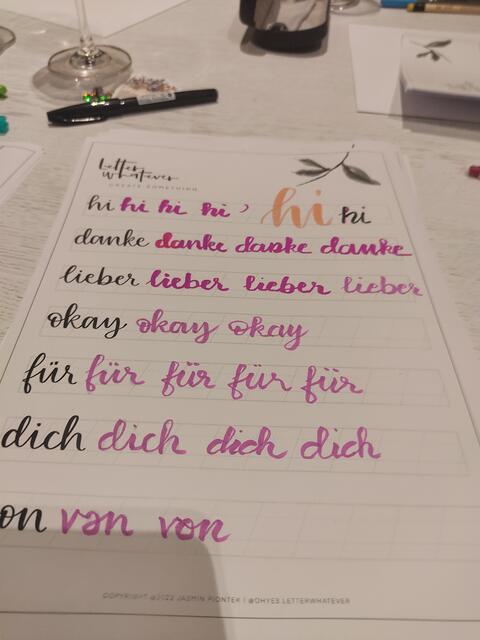 Letter
Whatever
CREATE SOMETHING
hi hi hi hi hi hi
danke danke danke danke
lieber lieber lieber lieber
okay okay okay
für für für für für
dich dich dich dich
on von von
COPYRIGHT @2022 JASMIN PIONTEK | @OHYES.LETTERWHATEVER